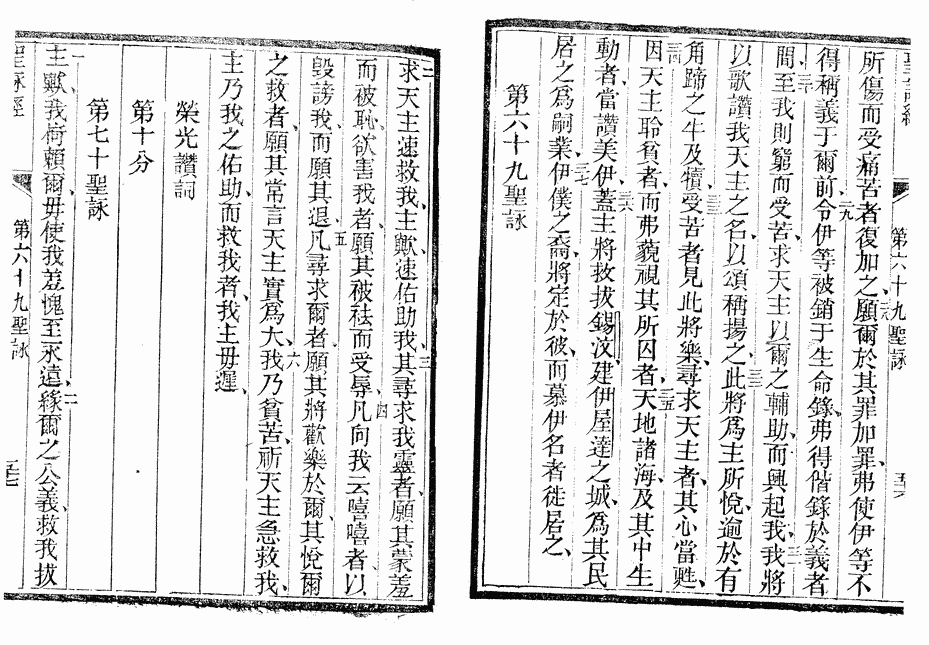 第六十九聖詠
所傷而受痛苦者復加之、二八願爾於其罪加罪、弗使伊等不
得稱義于爾前、二九令伊等被銷于生命錄、弗得偕錄於義者
間、三十至我則窮而受苦、求天主以爾之輔助、而興起我、三一我將
以歌讚我天主之名、以頌稱揚之、三二此將爲主所悅、逾於有
角蹄之牛及犢、三三受苦者見此將樂、尋求天主者、其心當甦、
三四因天主聆貧者、而弗藐視其所囚者、三五天地諸海、及其中生
動者、當讚美伊、三六蓋主將救拔錫汶、建伊屋達之城、爲其民
居之爲嗣業、三七伊僕之裔、將定於彼、而慕伊名者徙居之、
第六十九聖詠
二求天主速救我、主歟速佑助我、三其尋求我靈者、願其蒙羞
而被恥、欲害我者、願其被祛而受辱、四凡向我云嘻嘻者、以
毀謗我、而願其退、五凡尋求爾者、願其將歡樂於爾、其悅爾
之救者、願其常言天主實爲大、六我乃貧苦、祈天主急救我、
主乃我之佑助、而救我者、我主毋遲、
榮光讚詞
第十分
第七十聖詠
一主歟、我倚賴爾、毋使我羞愧至永遠、二緣爾之公義、救我拔
聖詠經
第六十九聖詠